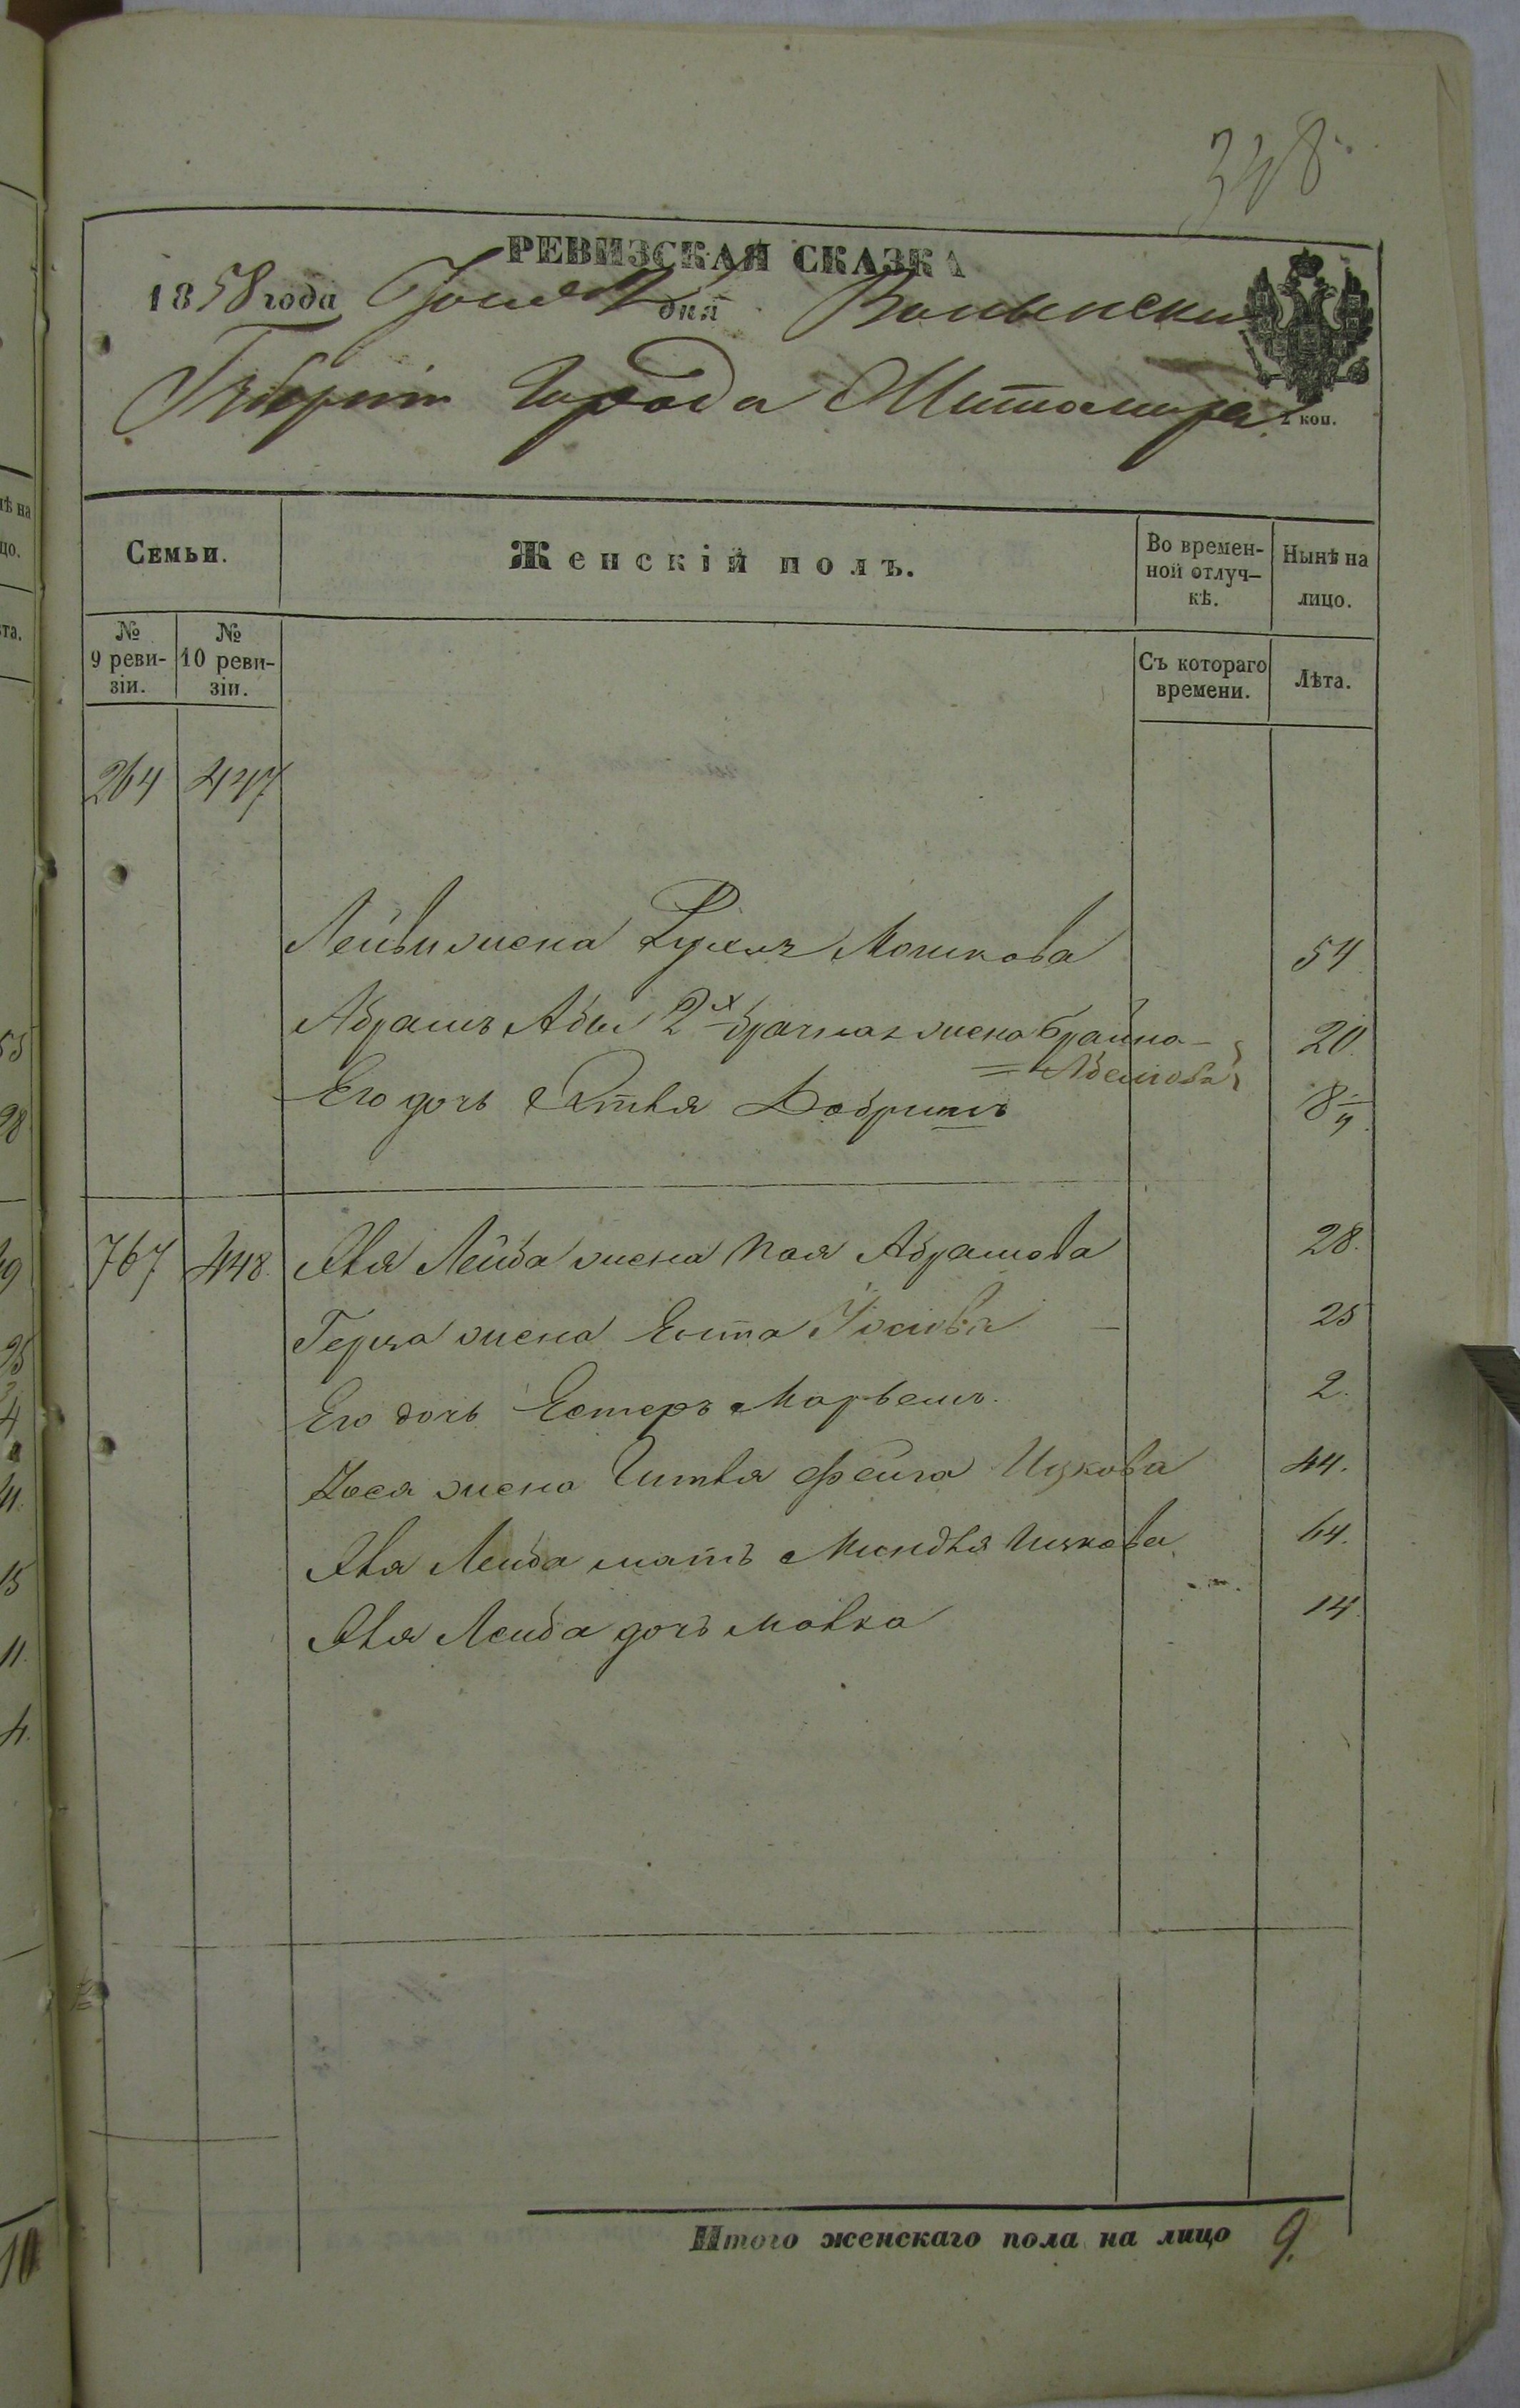 348
РЕВИЗСКАЯ СКАЗКА
1858 года Іюня дня Волынской
Губерніи Города Житомира
2 коп.
Семьи.
Женскій полъ.
Во времен-
ной отлуч-
кѣ.
Нынѣ на
лицо.
№
9 реви-
зіи.
№
10 реви-
зіи.
Съ котораго
времени.
Лѣта.
264 447
Лейбы жена Рухля Мошкова 54
Абрамъ Абы 2х брачная жена Брайна 20
Его дочь Добришъ
767 448. Лейба жена Абрамова 28.
Герша жена Ента 25
Его дочь Естеръ Марьемъ. 2.
жена Гитля Фейга Ицкова 44.
Лейба мать Миндля Ицкова 64.
Лейба дочь 14
Итого женскаго пола на лицо 9.